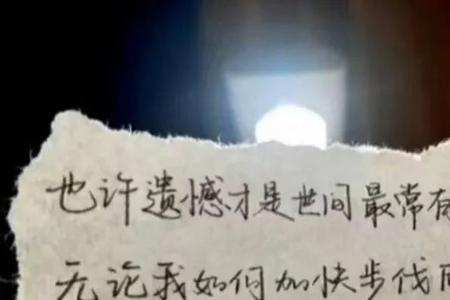 也许遗憾才是世间最常有
无论我如何加快步伐